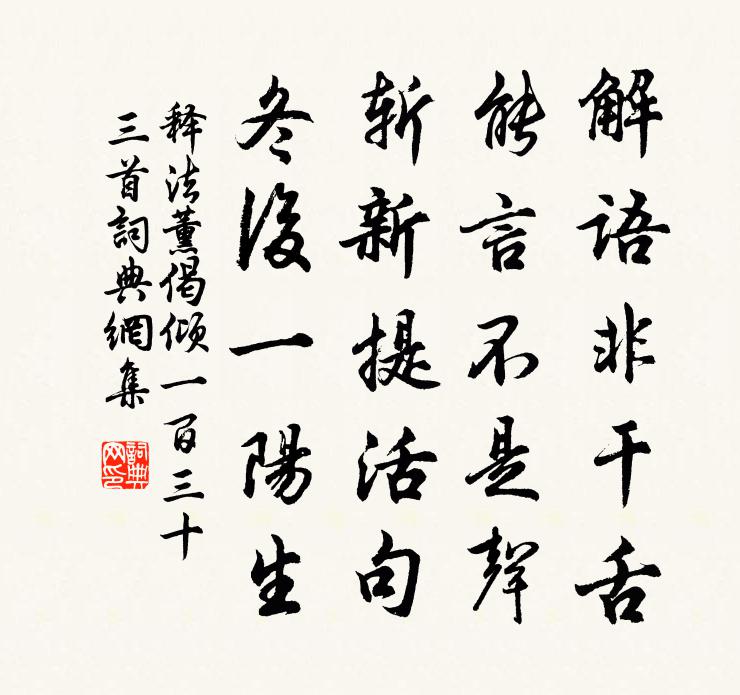 解語非干舌
能言不是聲
斬新提活句
冬後一陽生
释法薰偈傾一百三十
三首詞典網集
詞典网印